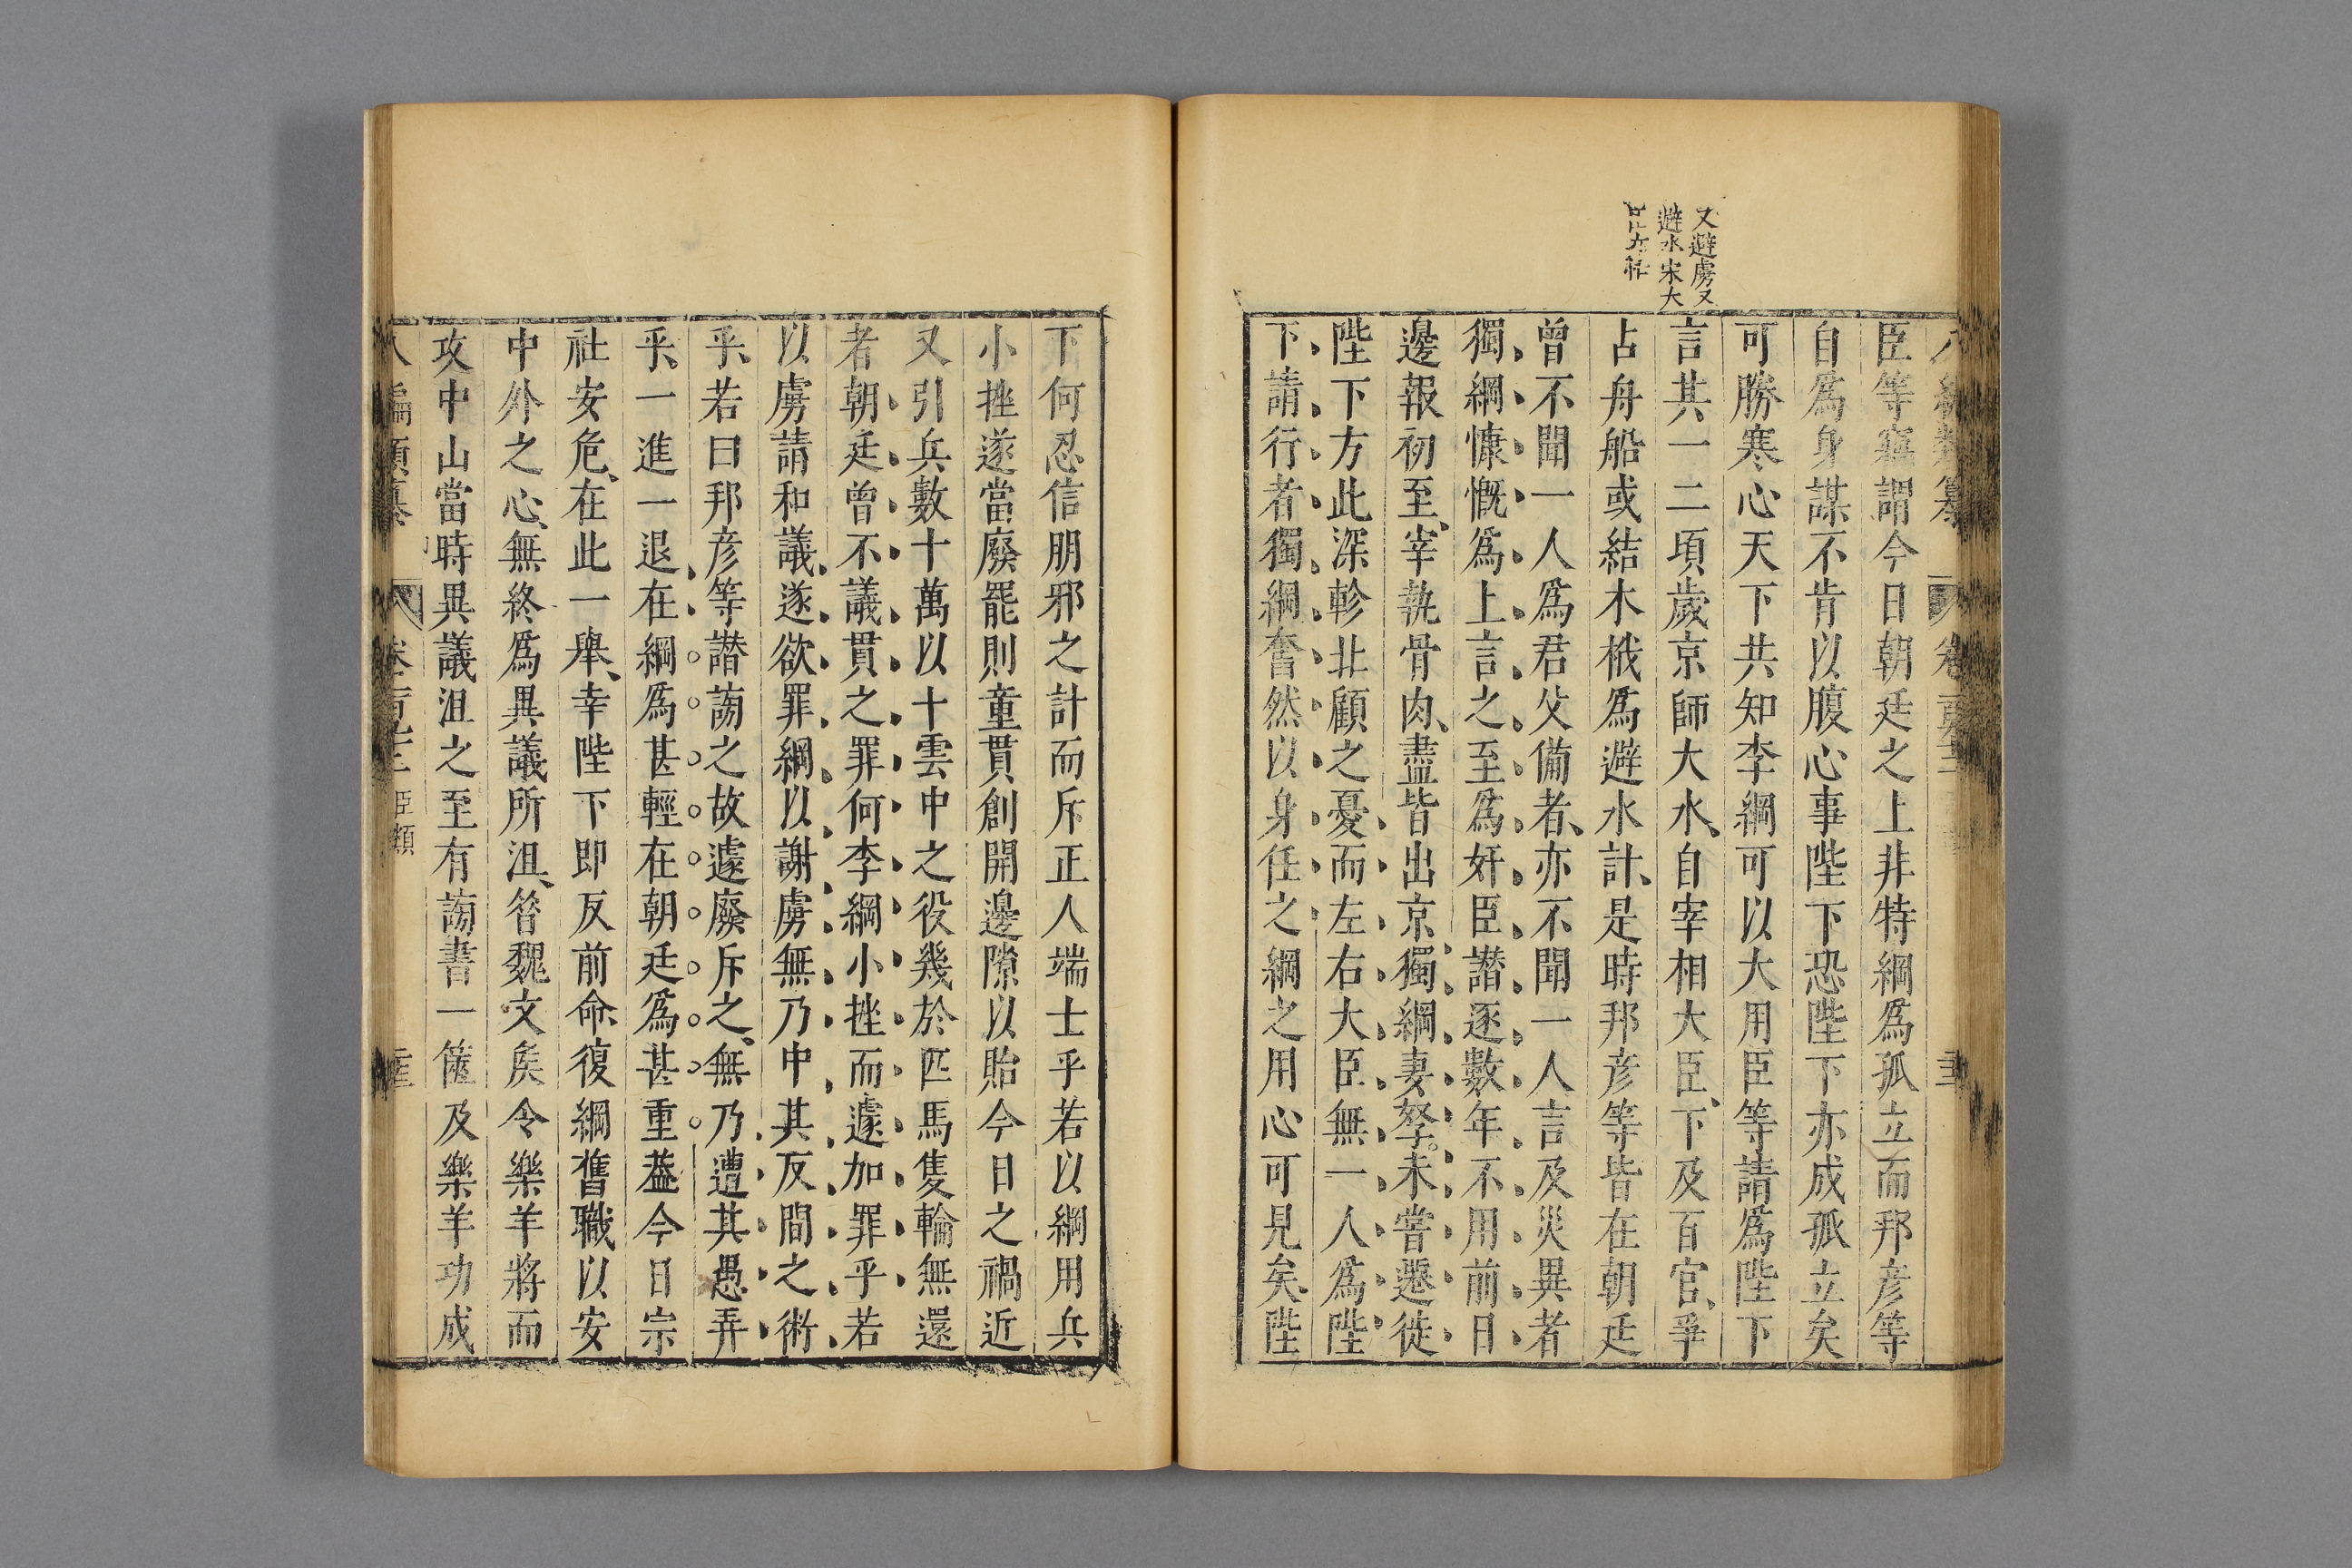 又避虜又
避水宋大
臣等竊謂今日朝廷之上非特綱爲孤立而邦彦等
自爲身謀不肯以腹心事陛下恐陛下亦成孤立矣
可勝寒心天下共知李綱可以大用臣等請爲陛下
言其一二項歲京師大水自宰相大臣下及百官爭
占舟船或結木栰爲避水計是時邦彦等皆在朝廷
曾不聞一人爲君父備者亦不聞一人言及災異者
獨綱慷慨爲上言之至爲奸臣譖逐數年不用前日
邊報初至宰執骨肉盡皆出京獨綱妻孥未嘗遷徙
陛下方此深軫北顧之憂而左右大臣無一人爲陛
下請行者獨綱奮然以身任之綱之用心可見矣陛
下何忍信朋邪之計而斥正人端士乎若以綱用兵
小挫遂當廢罷則童貫創開邊隙以貽今日之禍近
又引兵數十萬以十雲中之役幾於匹馬隻輪無還
者朝廷曾不議貫之罪何李綱小挫而遽加罪乎若
以虜請和議遂欲罪綱以謝虜無乃中其反間之術
乎若曰邦彦等譖謗之故遽廢斥之無乃遭其愚弄
乎一進一退在綱爲甚輕在朝廷爲甚重蓋今日宗
社安危在此一舉幸陛下即反前命復綱舊職以安
中外之心無終爲異議所沮昝魏文矦令樂羊將而
攻中山當時異議沮之至有謗書一篋及樂羊功成
八編類纂 卷 臣類